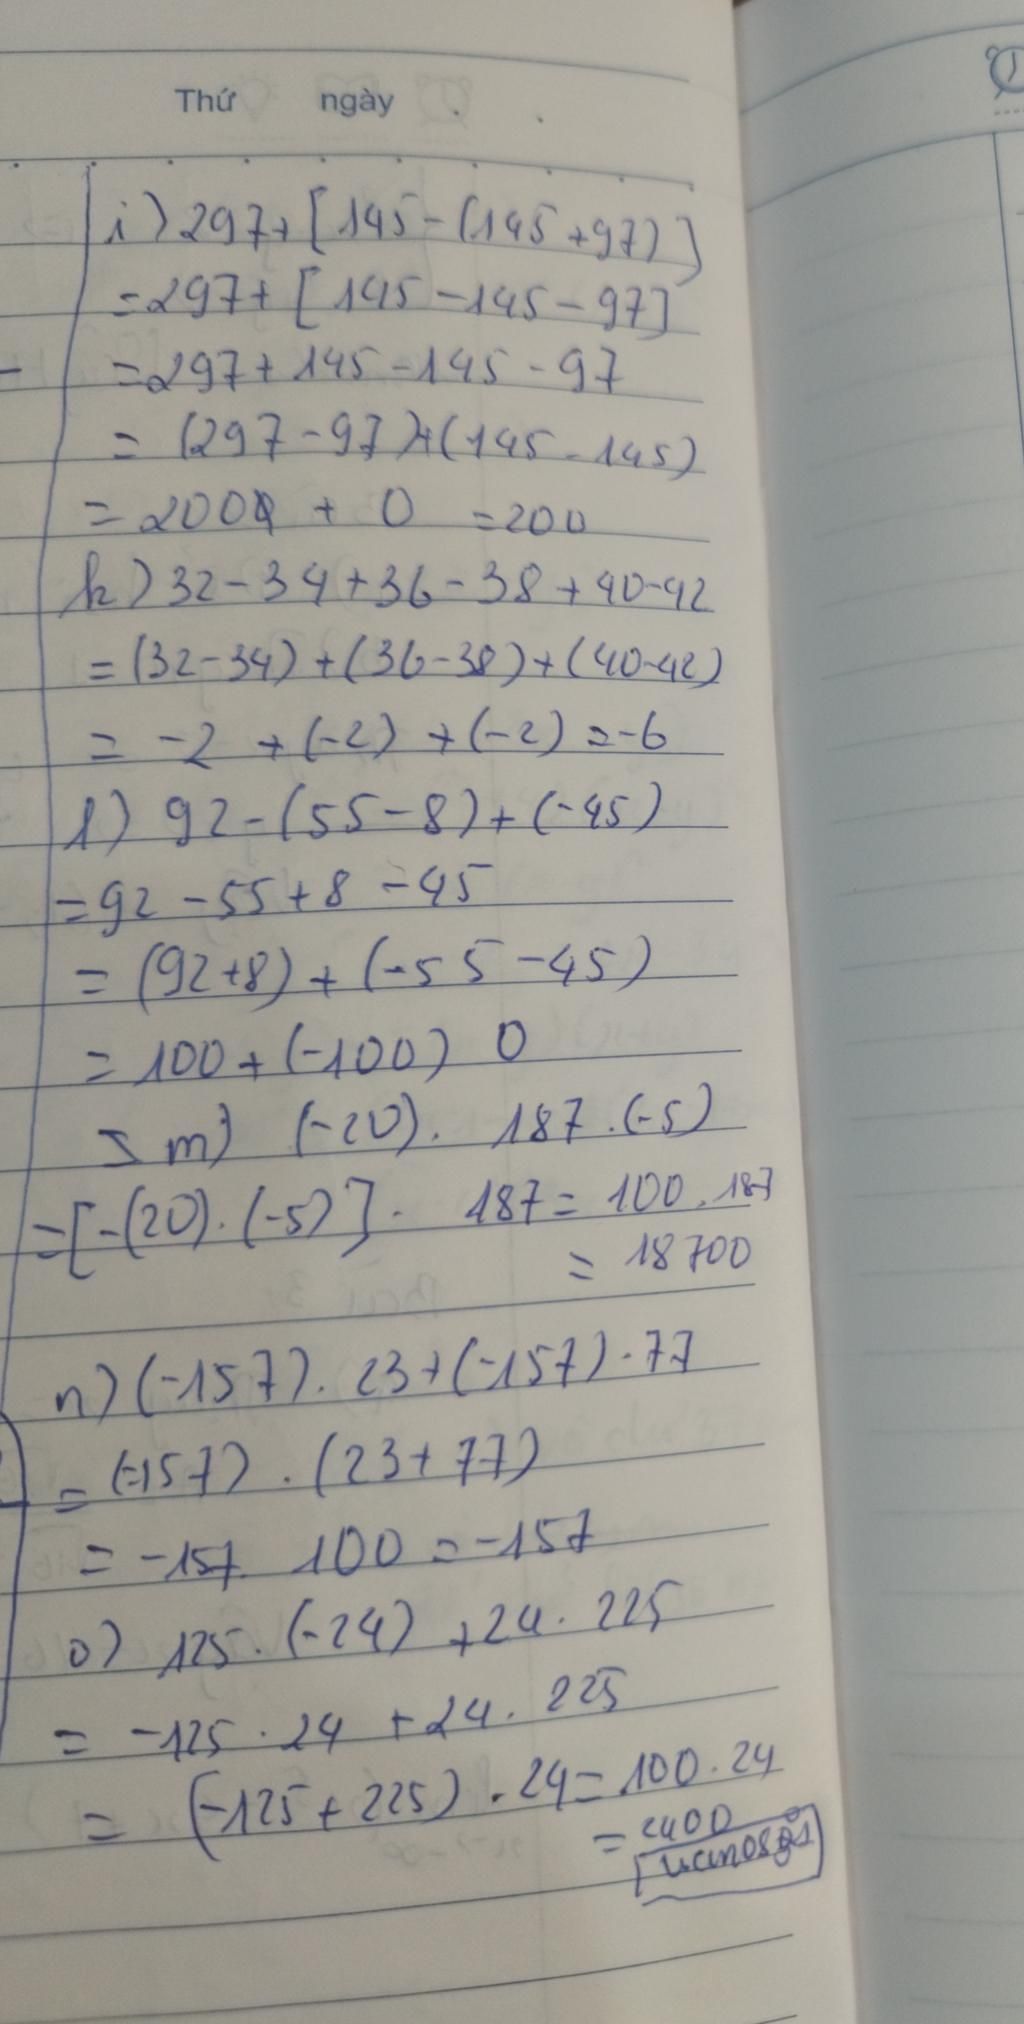 Thứ ngày
i) 297 + [145 - (145 + 97)]
= 297 + [145 - 145 - 97]
= 297 + 145 - 145 - 97
= (297 - 97) + (145 - 145)
= 200 + 0 = 200
k) 32 - 34 + 36 - 38 + 40 - 42
= (32 - 34) + (36 - 38) + (40 - 42)
= -2 + (-2) + (-2) = -6
l) 92 - (55 - 8) + (-45)
= 92 - 55 + 8 - 45
= (92 + 8) + (-55 - 45)
= 100 + (-100) 0
m) (-20). 187 . (-5)
= [-(20) . (-5)] . 187 = 100 . 187
= 18700
n) (-157) . 23 + (-157) . 77
= (-157) . (23 + 77)
= -157. 100 = -157
o) 125 . (-24) + 24 . 225
= -125 . 24 + 24 . 225
= (-125 + 225) . 24 = 100 . 24
= 2400